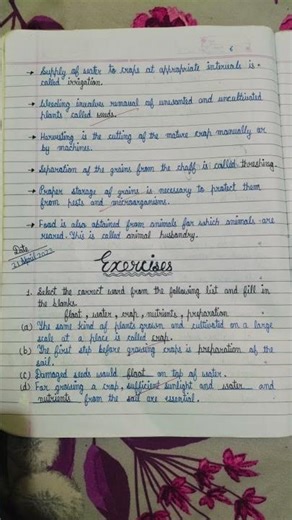 6
→ Supply of water to crops at appropriate intervals is
called irrigation.
→ Weeding involves removal of unwanted and uncultivated
plants called weeds.
→ Harvesting is the cutting of the mature crop manually or
by machines.
→ Separation of the grains from the chaff is called threshing.
→ Proper storage of grains is necessary to protect them
from pests and microorganisms.
→ Food is also obtained from animals for which animals are
reared. This is called animal husbandry.
Date
21 April 2022
Exercises
1. Select the correct word from the following list and fill in
the blanks.
float, water, crop, nutrients, preparation
(a) The same kind of plants grown and cultivated on a large
scale at a place is called crop.
(b) The first step before growing crops is preparation of the
soil.
(c) Damaged seeds would float on top of water.
(d) For growing a crop, sufficient sunlight and water and
nutrients from the soil are essential.